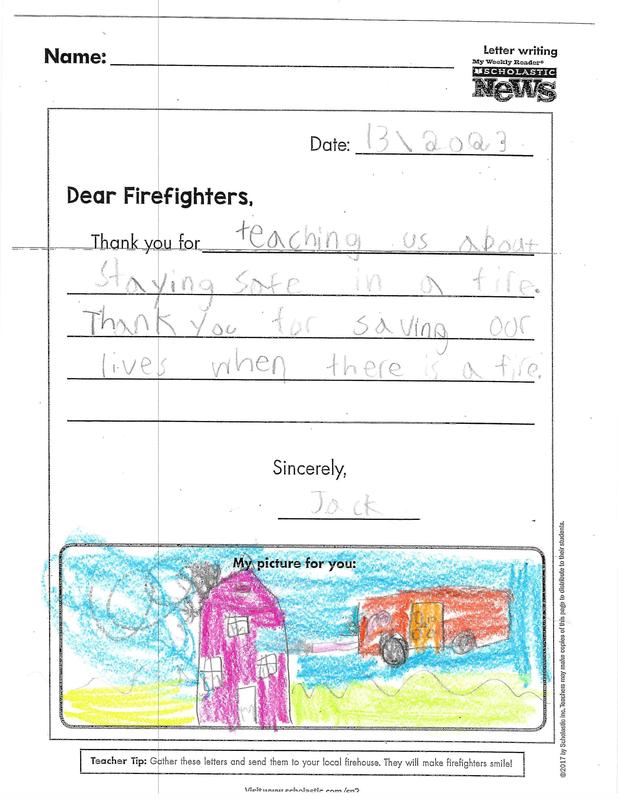 Letter writing
Name:
My Weekly Reader®
SCHOLASTIC
News
Date: 13\2023
Dear Firefighters,
Thank you for teaching us about
staying safe in a fire.
Thank you for saving our
lives when there is a fire.
Sincerely,
Jack
My picture for you:
Teacher Tip: Gather these letters and send them to your local firehouse. They will make firefighters smile!
©2017 by Scholastic Inc. Teachers may make copies of this page to distribute to their students.
Visit www.scholastic.com/sn2